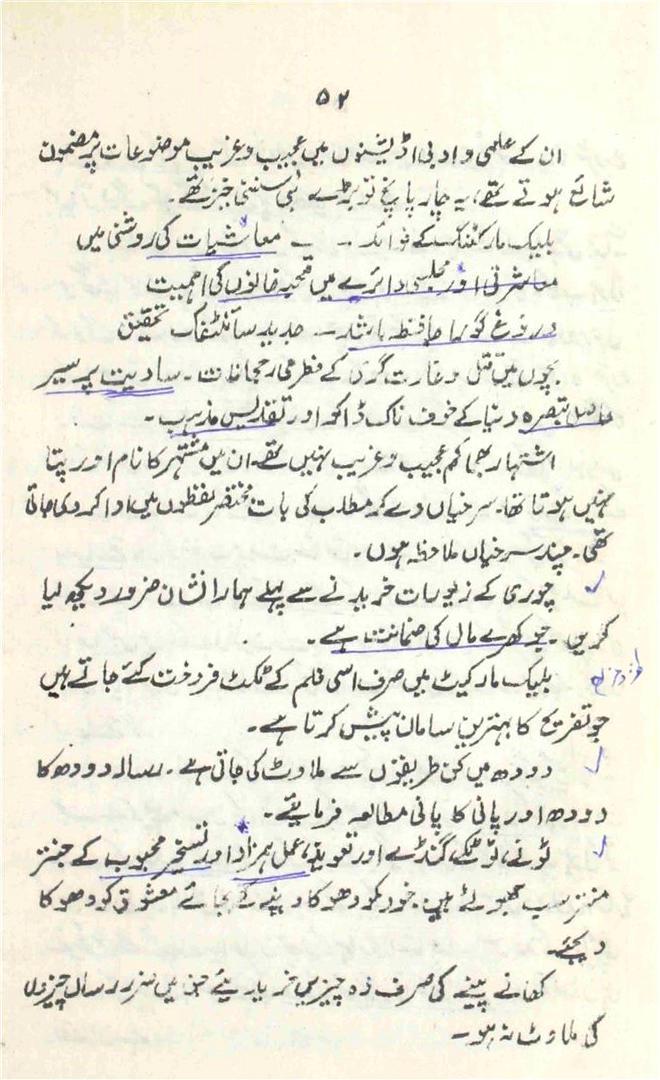 ۵۲
ان کے علمی و ادبی اڈیشنوں میں عجیب و غریب موضوعات پر مضمون
شائع ہوتے تھے، یہ چار پانچ تو بڑے ہی سنسنی خیز تھے۔
بلیک مارکٹنگ کے فوائد ۔۔ معاشیات کی روشنی میں
معاشرتی اور مجلسی دائرے میں قحبہ خانوں کی اہمیت
دروغ گو را حافظہ باشد ۔۔ جدید سائنٹفک تحقیق
بچوں میں قتل و غارت گری کے فطری رجحانات ۔ سادیت پر سیر
حاصل تبصرہ دنیا کے خوف ناک ڈاکو اور تقدیس مذہب ۔
اشتہار بھی کم عجیب و غریب نہیں تھے۔ ان میں مشتہر کا نام اور پتا
نہیں ہوتا تھا۔ سرخیاں دے کر مطلب کی بات مختصر لفظوں میں ادا کر دی جاتی
تھی۔ چند سرخیاں ملاحظہ ہوں۔
چوری کے زیورات خریدنے سے پہلے ہمارا نشان ضرور دیکھ لیا
کریں ۔ جو کھرے مال کی ضمانت ہے ۔
بلیک مارکیٹ میں صرف اسی فلم کے ٹکٹ فروخت کئے جاتے ہیں
جو تفریح کا بہترین سامان پیش کرتا ہے ۔
دودھ میں کن طریقوں سے ملاوٹ کی جاتی ہے ۔ رسالہ دودھ کا
دودھ اور پانی کا پانی مطالعہ فرمایئے ۔
ٹونے، ٹوٹکے، گنڈے اور تعویذ، عمل ہمزاد اور تسخیر محبوب کے جنتر
منتر سب جھوٹے ہیں۔ خود کو دھوکا دینے کے بجائے معشوق کو دھوکا
دیجئے۔
کھانے پینے کی صرف وہ چیزیں خریدیئے جن میں ضرر رساں چیزوں
کی ملاوٹ نہ ہو ۔